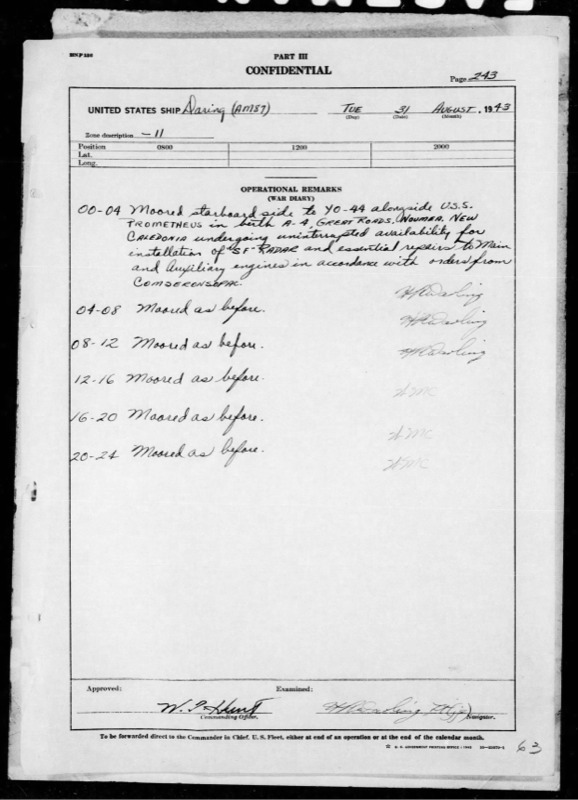 PART III
CONFIDENTIAL
Page 243
UNITED STATES SHIP Daring (AM87) TUE 31 AUGUST, 1943
(Day) (Date) (Month)
Zone description -11
Position 0800 1200 2000
Lat.
Long.
OPERATIONAL REMARKS
(WAR DIARY)
00-04 Moored starboard side to YO-44 alongside U.S.S.
PROMETHEUS in berth A-4, GREAT ROADS, NOUMEA, NEW
CALEDONIA undergoing uninterrupted availability for
installation of "SF" RADAR and essential repairs to Main
and Auxiliary engines in accordance with orders from
COMSERONSOPAC.
HR Darling
04-08 Moored as before.
HR Darling
08-12 Moored as before.
HR Darling
12-16 Moored as before.
16-20 Moored as before.
20-24 Moored as before.
Approved: Examined:
Commanding Officer. Navigator.
To be forwarded direct to the Commander in Chief, U. S. Fleet, either at end of an operation or at the end of the calendar month.
63